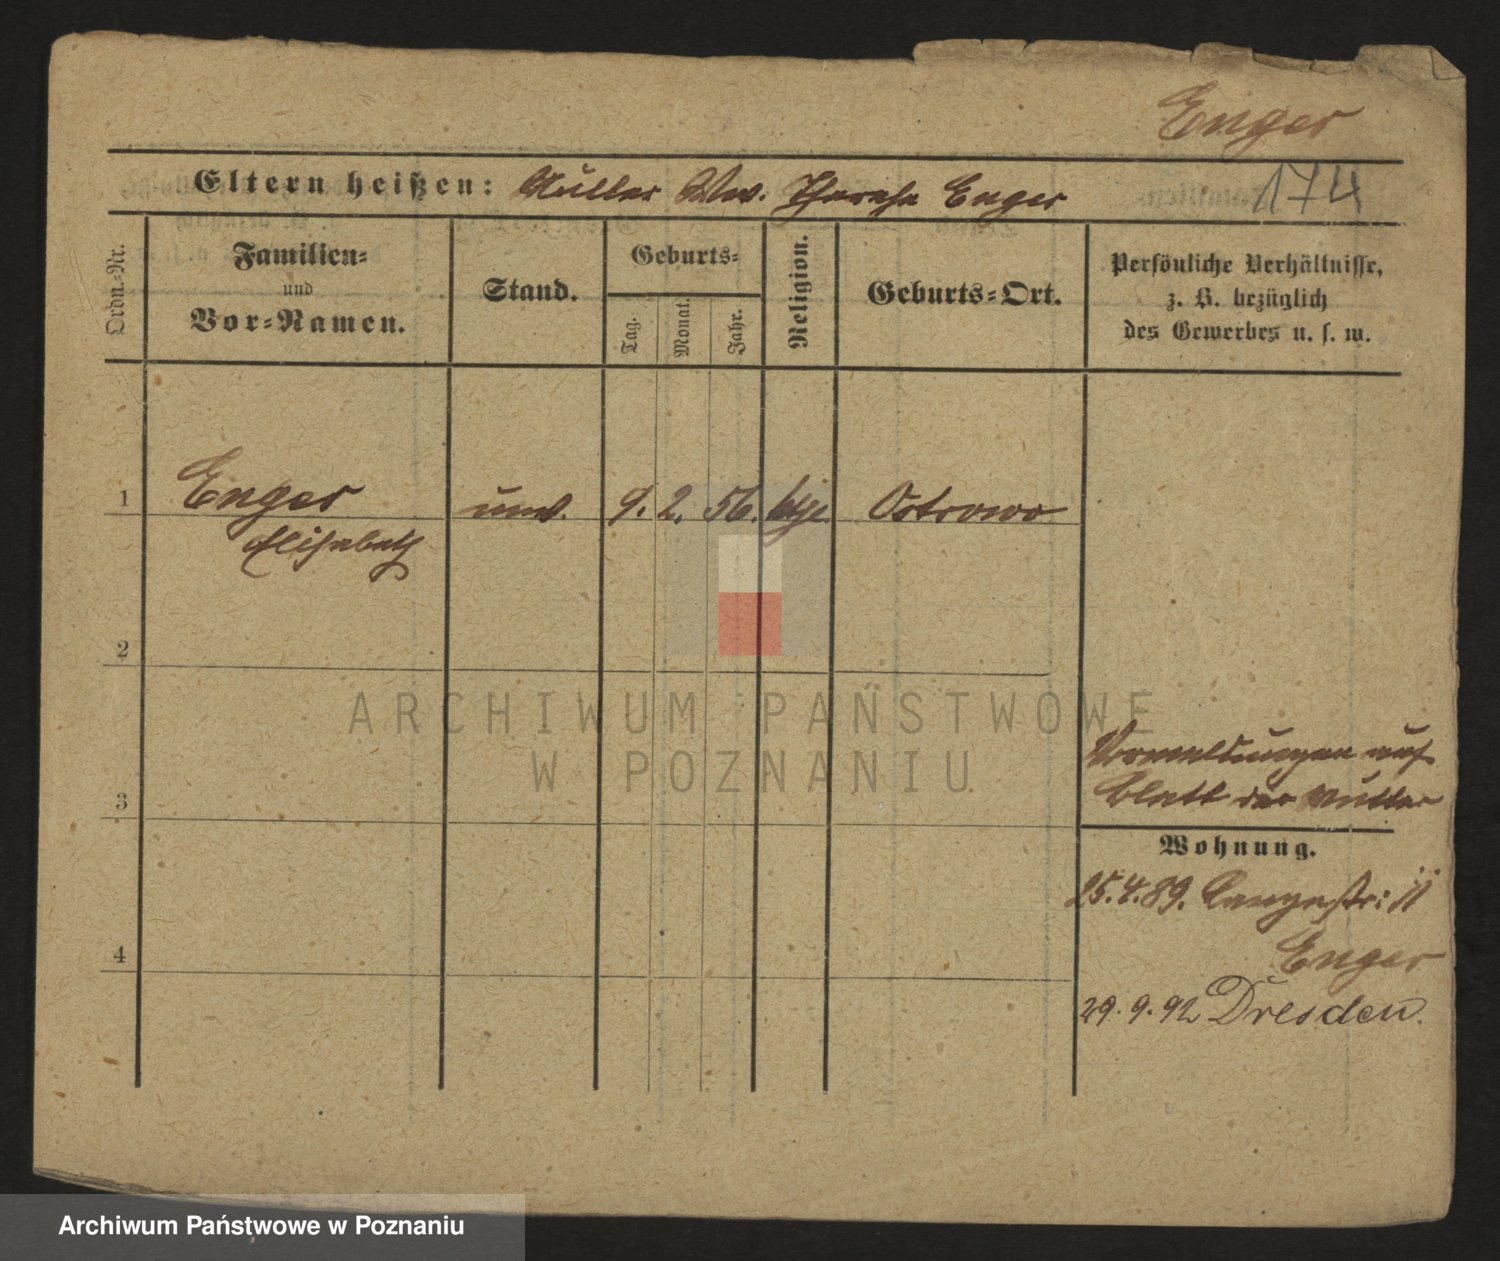 Enger
174
Eltern heißen: Mutter Ww. Therese Enger
Ordn.-Nr.
Familien-
und
Vor-Namen.
Stand.
Geburts-
Tag.
Monat.
Jahr.
Religion.
Geburts-Ort.
Persönliche Verhältnisse,
z. B. bezüglich
des Gewerbes u. s. w.
1
Enger
Elisabeth
unv.
9. 2. 56.
Ostrowo
2
ARCHIWUM PAŃSTWOWE
W POZNANIU
3
4
Vormeldungen auf
Blatt der Mutter
Wohnung.
25.4.89. Langestr: 11
Enger
29.9.92 Dresden.
Archiwum Państwowe w Poznaniu